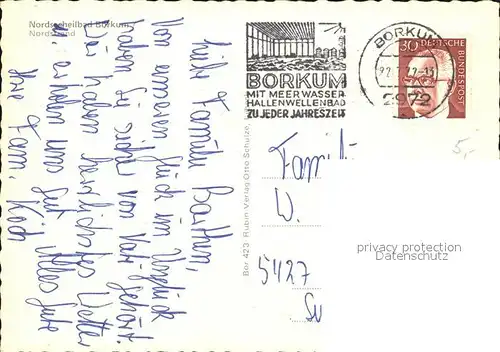 Nordseeheilbad Borkum
Nordstrand
Liebe Familie Barthum,
Von unserem Glück im Unglück
haben Sie sicher von Vati gehört.
Wir haben herrlichstes Wetter
u. erholen uns gut. Alles Gute
Ihre Fam. Koch
Bor 423 Rubin-Verlag Otto Schulze,
BORKUM
MIT MEERWASSER
HALLENWELLENBAD
ZU JEDER JAHRESZEIT
BORKUM
2972
30 DEUTSCHE
BUNDESPOST
5,-
Famil
W.
5427
privacy protection
Datenschutz